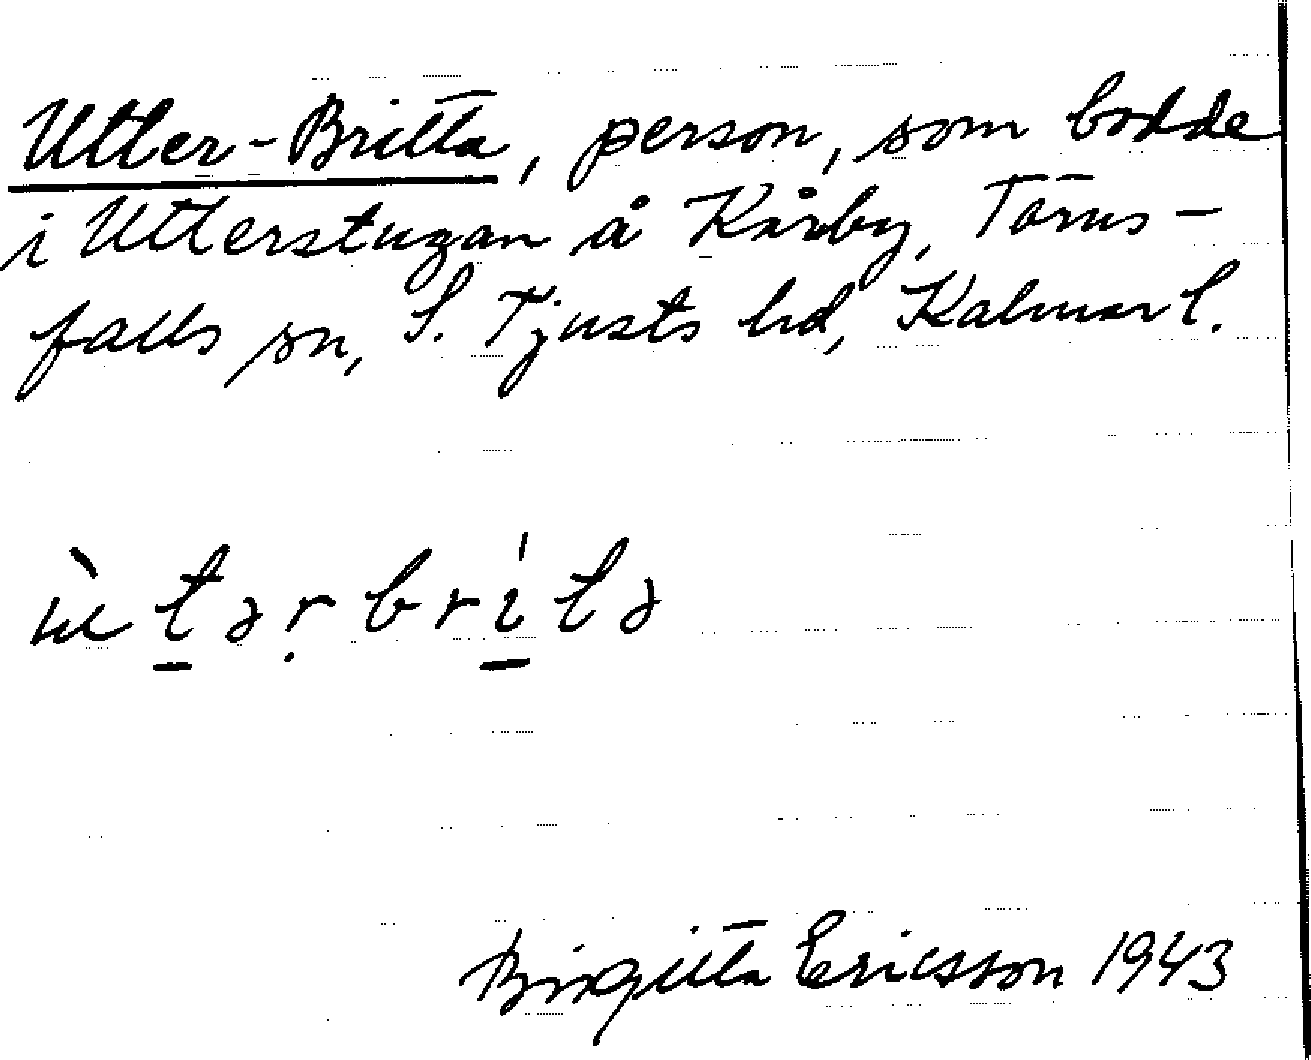 Utter-Britta, person, som bodde
i Utterstugan å Kårby, Törns-
falls sn, S. Tjusts hd, Kalmar l.
ɯ̀t̠ər̥brɩ́tə
Birgitta Ericsson 1943